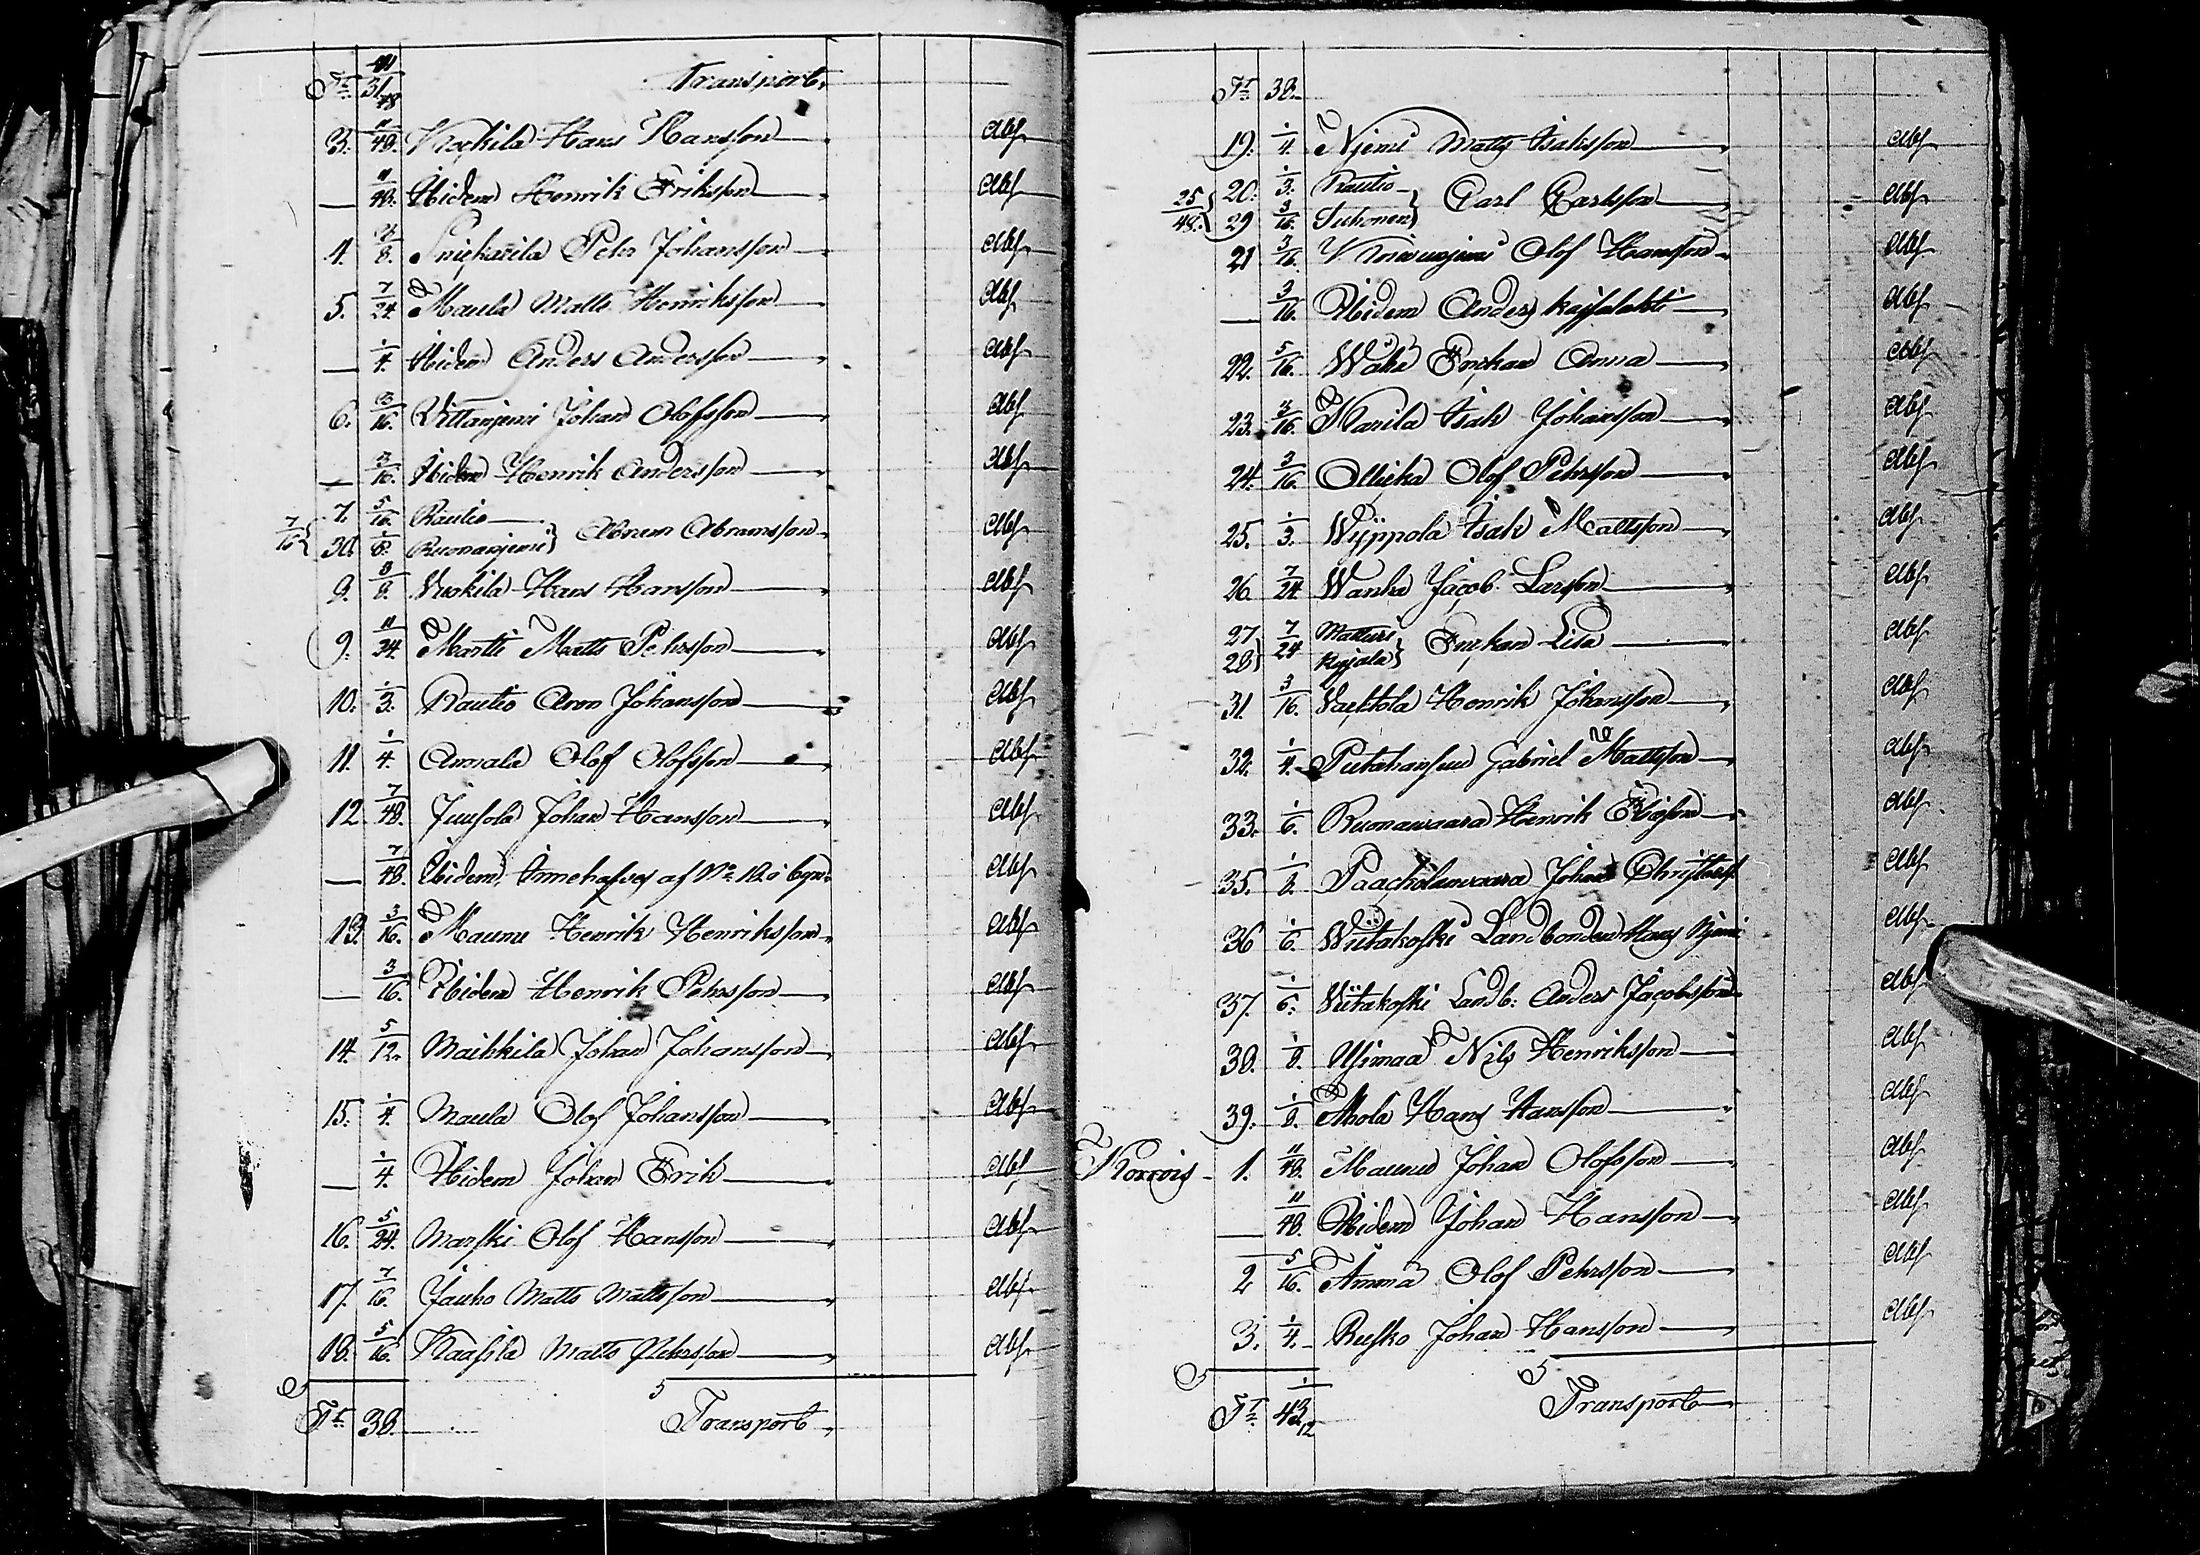 Tt 31 11/48 Transport
3. 11/48. Wockila Hans Hansson Abf
— 11/48. Ibidem Henrik Eriksson Abf
4. 3/8. Pehr Johansson Abf
5. 7/24 Maula Matts Henriksson Abf
— 1/4. Ibidem Anders Andersson Abf
6. 3/16. Vittaniemi Johan Olofsson Abf
— 3/16. Ibidem Henrik Andersson Abf
7/16 { 7. 5/16. Rautio } Abram Abramsson Abf
30. 1/8. Ruonaniemi
9. 3/8. Vuokila Hans Hansson Abf
9. 11/24. Martti Matts Pehrsson Abf
10. 1/3. Rautio Aron Johansson Abf
11. 1/4. Annala Olof Olofsson Abf
12. 7/48. Juusola Johan Hansson Abf
— 7/48. Ibidem, Innehafves af No 12 i byn Abf
13. 3/16. Maunu Henrik Henriksson Abf
— 3/16. Ibidem Henrik Pehrsson Abf
14. 5/12. Maikkila Johan Johansson Abf
15. 1/4. Maula Olof Johansson Abf
— 1/4. Ibidem Johan Erik Abf
16. 5/24. Marski Olof Hansson Abf
17. 7/16. Jauho Matts Mattsson Abf
18. 5/16. Kaasila Matts Pehrsson Abf
Tt 38. Transport
Tt 38.
19. 1/4. Niemi Matts Isaksson Abf
25/48. { 20. 1/3. Rautio } Carl Carlsson Abf
29 3/16. Suhonen
21 3/16. Olof Hansson Abf
— 3/16. Ibidem Anders Abf
22. 5/16. Enkan Anna Abf
23. 3/16. Marila Isak Johansson Abf
24. 3/16. Olof Pehrsson Abf
25. 1/3. Wyppola Isak Mattsson Abf
26. 7/24. Wanha Jacob Larsson Abf
27 28 } 7/24 Matturi } Enkan Lisa Abf
31. 3/16. Vachtola Henrik Johansson Abf
32. 1/4. Gabriel Mattsson Abf
33. 1/6. Ruonawaara Henrik Abf
35. 1/8. Johan Abf
36 1/6. Wiitakoski Landbonden Hans Niemi Abf
37. 1/6. Viitakoski Landb: Anders Jacobsson Abf
38. 1/8. Ylimaa Nils Henriksson Abf
39. 1/8. Ahola Hans Hansson Abf
Korrois 1. 11/48. Maunu Johan Olofsson Abf
— 11/48. Ibidem Johan Hansson Abf
2 5/16. Amma Olof Pehrsson Abf
3. 1/4. Rusko Johan Hansson Abf
Tt 43 1/12 Transport